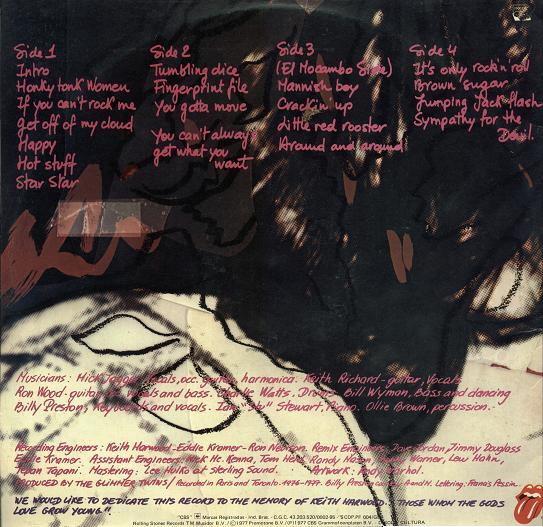 Side 1
Intro
Honky tonk Women
If you can't rock me
get off of my cloud
Happy
Hot stuff
Star Star
Side 2
Tumbling dice
Fingerprint file
You gotta move
You can't always
get what you
want
Side 3
(El Mocambo Side)
Mannish boy
Crackin up
Little red rooster
Around and around
Side 4
It's only rock'n roll
Brown sugar
Jumping Jack flash
Sympathy for the
Devil.
Musicians: Mick Jagger Vocals, occ. guitar, harmonica. Keith Richard-guitar, Vocals
Ron Wood-guitar vocals and bass. Charlie Watts. Drums. Bill Wyman, Bass and dancing
Billy Preston, Keyboards and vocals. Ian "Stu" Stewart, Piano. Ollie Brown, percussion.
Recording Engineers: Keith Harwood-Eddie Kramer-Ron Nevison. Remix Engineers, Dave Jordan Jimmy Douglass
Eddie Kramer. Assistant Engineers: Mick Mc. Kenna, Tom Heid, Randy Mason, Warner, Lew Hahn,
Tapani. Mastering: Lee Hulko at Sterling Sound. Artwork: Andy Warhol.
PRODUCED BY THE GLIMMER TWINS / Recorded in Paris and Toronto. 1976-1977. Billy Preston Lettering:
WE WOULD LIKE TO DEDICATE THIS RECORD TO THE MEMORY OF KEITH HARWOOD. THOSE WHOM THE GODS
LOVE GROW YOUNG."
"CBS" Marcas Registradas - Ind. Bras. - C.G.C.
Rolling Stones Records T.M. ℗ 1977 CBS